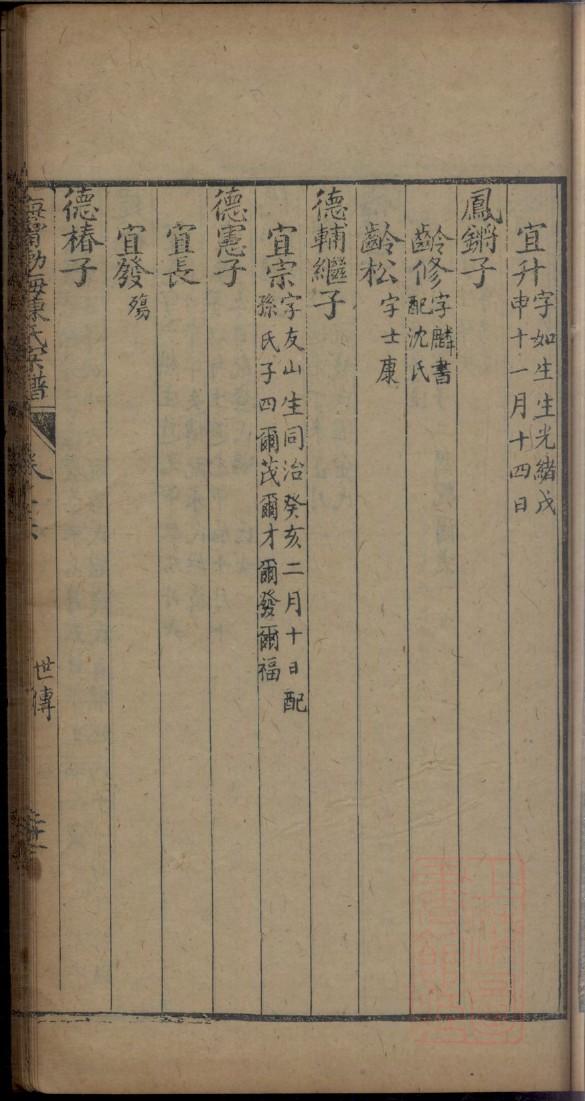 宜升字如生生光緒戊
申十一月十四日
鳳鏘子
齡修字麟書
配沈氏
齡松字士康
德輔繼子
宜宗字友山生同治癸亥二月十日配
孫氏子四爾茂爾才爾發爾福
德憲子
宜長
宜發殤
德椿子
陳氏宗譜
世傳